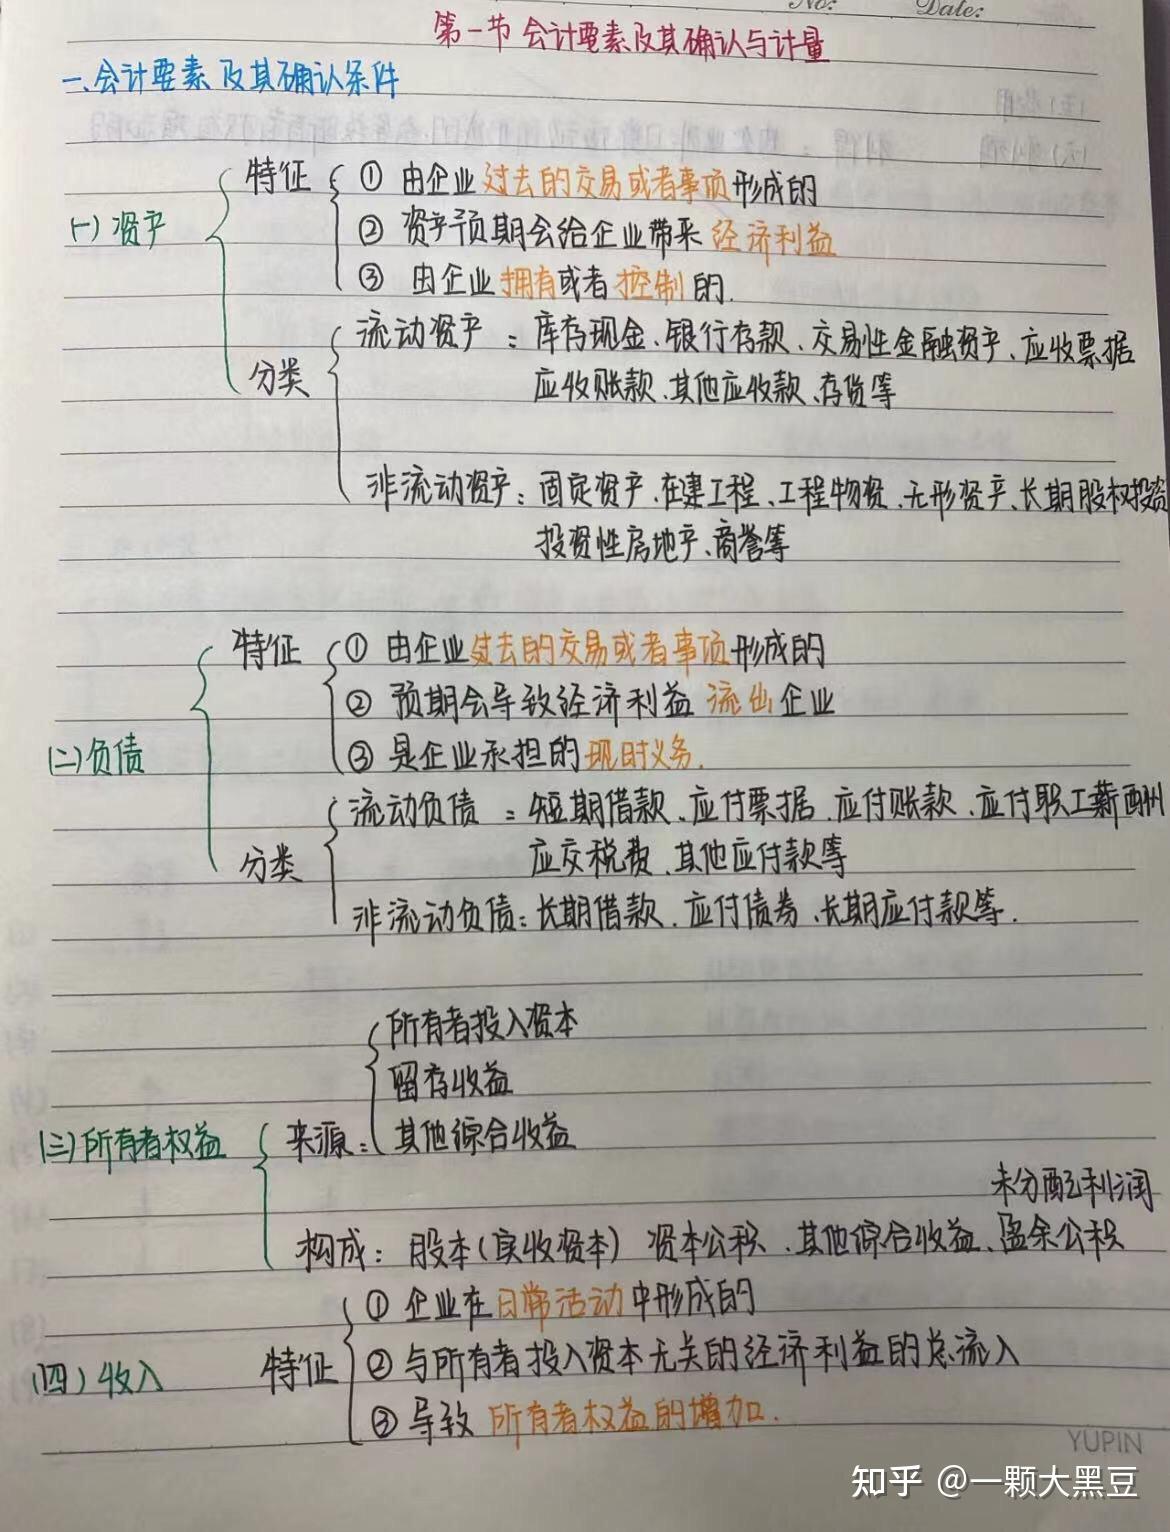 No:
Date:
第一节 会计要素及其确认与计量
一、会计要素及其确认条件
(一)资产
特征
① 由企业过去的交易或者事项形成的
② 资产预期会给企业带来经济利益
③ 由企业拥有或者控制的.
分类
流动资产：库存现金、银行存款、交易性金融资产、应收票据
应收账款、其他应收款、存货等
非流动资产：固定资产、在建工程、工程物资、无形资产、长期股权投资
投资性房地产、商誉等
(二)负债
特征
① 由企业过去的交易或者事项形成的
② 预期会导致经济利益流出企业
③ 是企业承担的现时义务.
分类
流动负债：短期借款、应付票据、应付账款、应付职工薪酬
应交税费、其他应付款等
非流动负债：长期借款、应付债券、长期应付款等.
(三)所有者权益
来源：
所有者投入资本
留存收益
其他综合收益
未分配利润
构成：股本(实收资本) 资本公积、其他综合收益、盈余公积
(四)收入
特征
① 企业在日常活动中形成的
② 与所有者投入资本无关的经济利益的总流入
③ 导致所有者权益的增加.
YUPIN
知乎 @一颗大黑豆